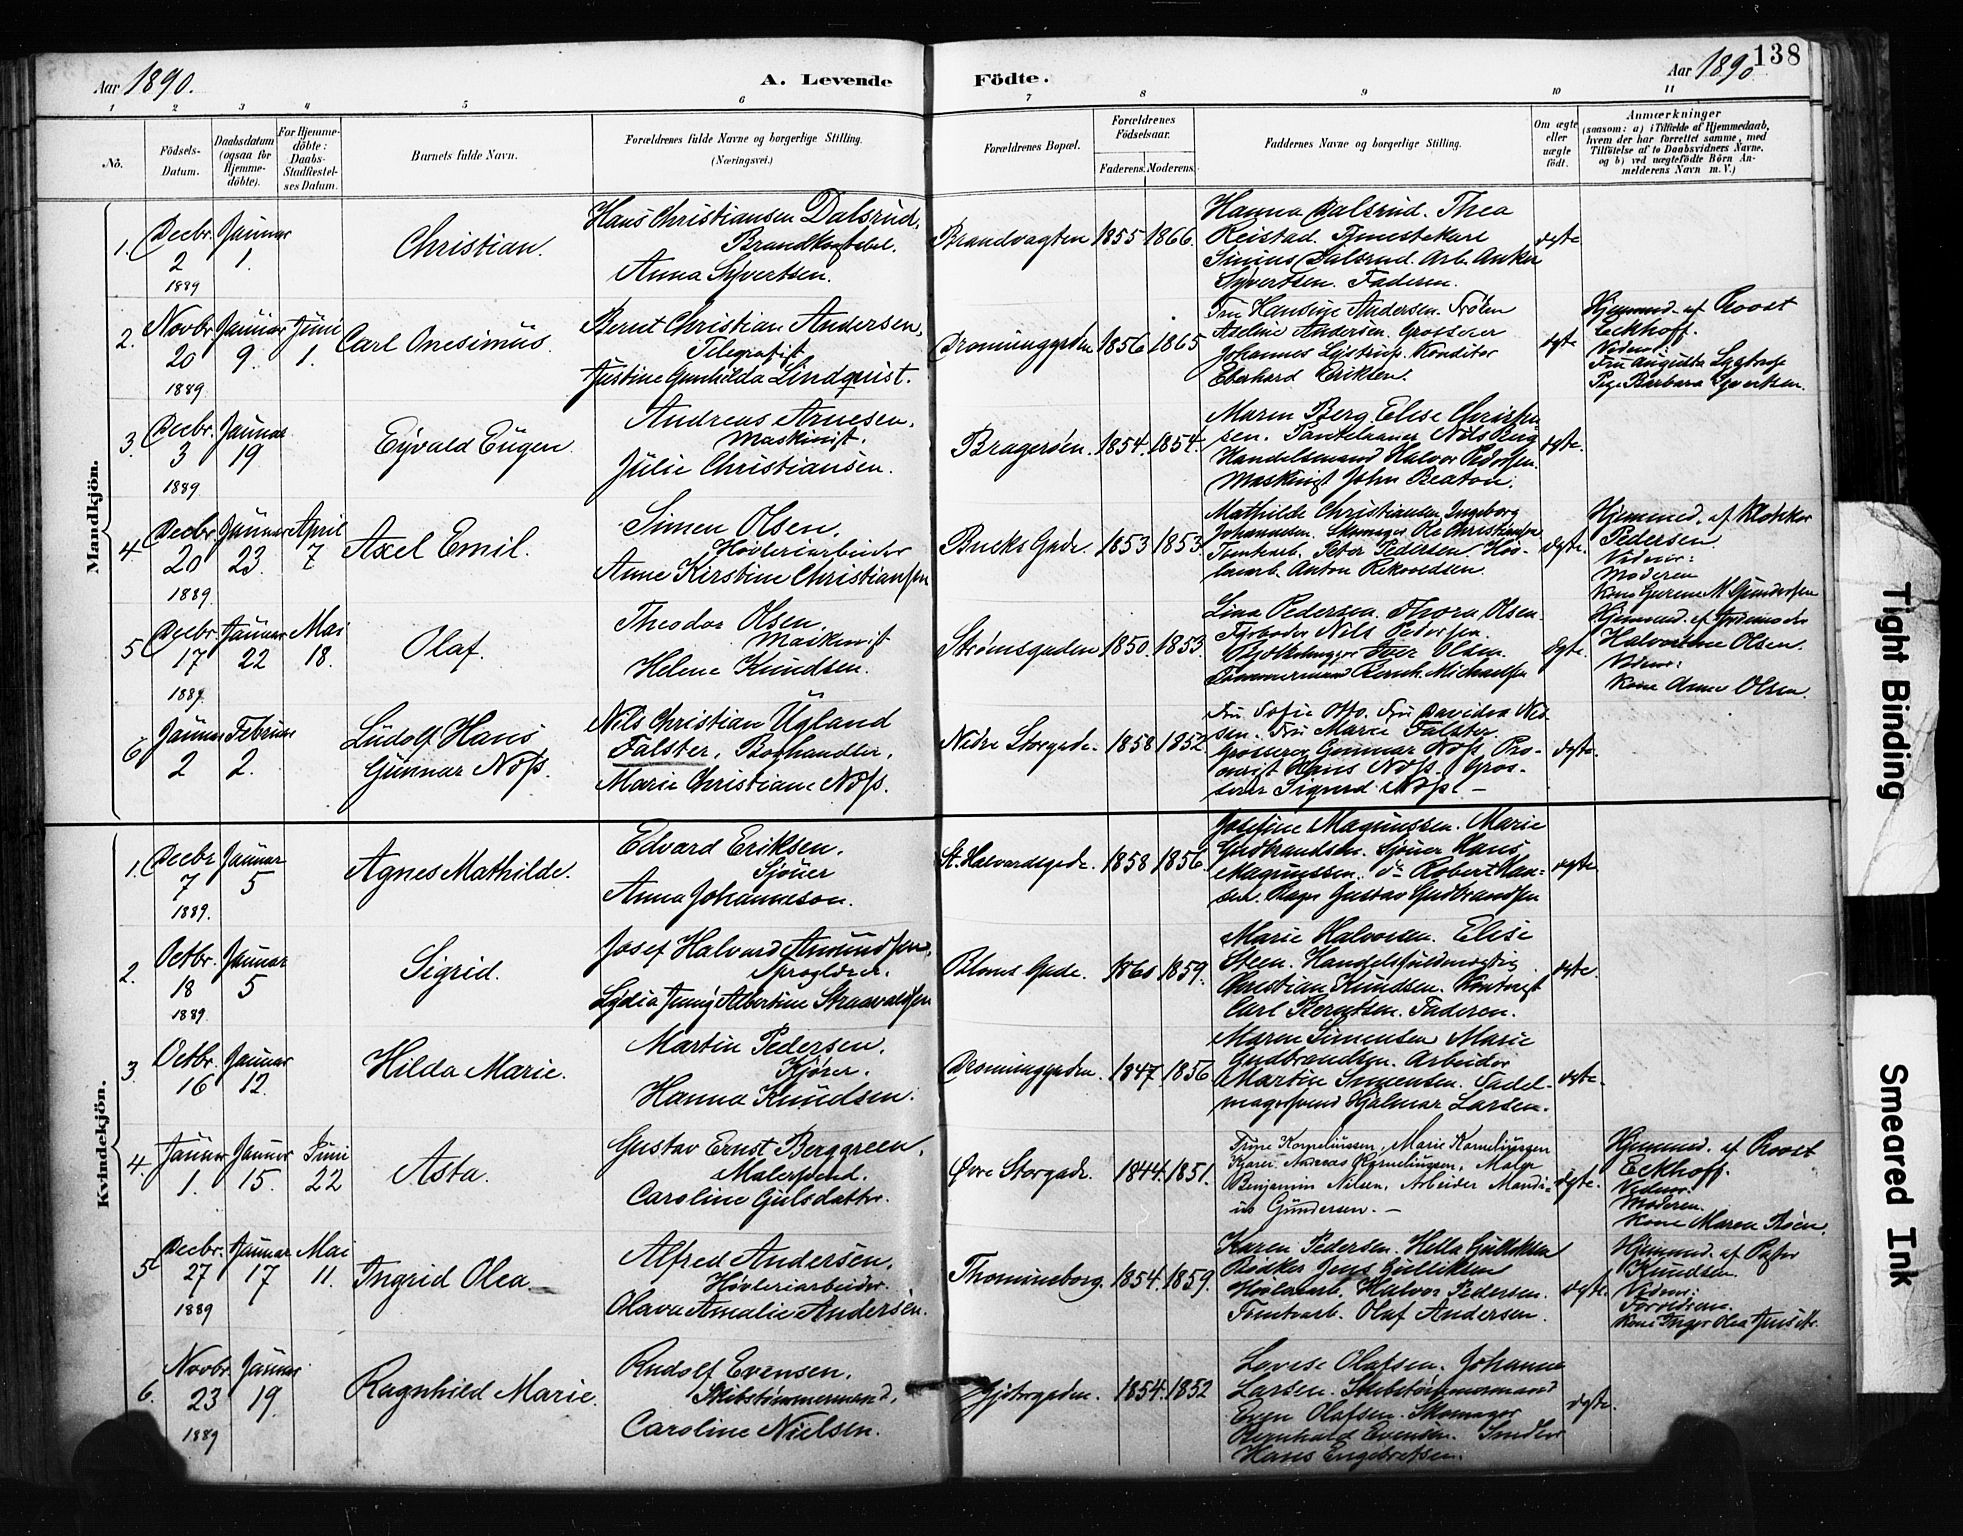 Aar 1890.
A. Levende Födte.
Aar 1890
138
1 2 3 4 5 6 7 8 9 10 11
No.
Födsels-Datum.
Daabsdatum (ogsaa for Hjemmedöbte).
For Hjemmedöbte: Daabs-Stadfæstelses Datum.
Barnets fulde Navn.
Forældrenes fulde Navne og borgerlige Stilling. (Næringsvei.)
Forældrenes Bopæl.
Forældrenes Födselsaar.
Faderens. Moderens.
Faddernes Navne og borgerlige Stilling.
Om ægte eller uægte födt.
Anmærkninger
(saasom: a) i Tilfælde af Hjemmedaab, hvem der har forrettet samme, med Tilföielse af to Daabsvidners Navne. og b) ved uægtefödte Börn Anmelderens Navn m. V.)
Mandkjön.
1. Decbr. 2 1889
Januar 1.
Christian.
Hans Christiansen Dalsrud,
Brandkonstabel.
Anna Syvertsen.
Brandvagten 1855 1866.
Hanna Dalsrud. Thea
Reistad. Tjenestekarl
Simius Dalsrud. Arb. Anker
Syvertsen. Faderen.
ægte
2. Novbr. 20 1889
Januar 9.
Juni 1.
Carl Onesimus.
Bernt Christian Andersen,
Telegrafist
Justine Gunhilda Lindquist.
Dronninggaden 1856 1865
Fru Hansine Andersen. Frøken
Aseline Andersen. Grosserer
Johannes Lystrup. Konditor
Eberhard Eriksen.
ægte
Hjemmed. af Provst
Eckhoff.
Vidner:
Fru Augusta Lystrup
Pige Barbara Syvertsen.
3. Decbr. 3 1889
Januar 19
Eyvald Eugen
Andreas Arnesen,
Maskinist.
Julie Christiansen.
Bragerøen. 1854. 1854.
Maren Berg. Elise Christiansen.
Nils Berg
Handelsmand Halvor Pedersen.
Maskinist John Beaton.
ægte.
4. Decbr. 20 1889.
Januar 23.
April 7
Axel Emil.
Simen Olsen,
Høvleriarbeider
Anne Kirstine Christiansen
Bucks Gade. 1853 1853.
Mathilde Christiansen Ingeborg
Johannesen. Skomager Christiansen
Tomtearb. Peter Pedersen. Høvlearb.
Anton
ægte.
Hjemmed. af Klokker
Pedersen.
Vidner:
Moderen
Kone Gurene M. Gundersen
5 Decbr. 17 1889.
Januar 22
Mai 18.
Olaf.
Theodor Olsen,
Maskinist
Helene Knudsen.
Strømsgaden 1850. 1853.
Lina Pedersen. Thora Olsen.
Fyrbøder Nils Pedersen.
Olsen.
Tømmermand Bernh. Michaelsen
ægte.
Hjemmed. af Jordemoder
Halvorine Olsen.
Vidner:
Kone Anne Olsen.
6 Januar 2
Februar 2.
Ludolf Hans
Gunnar Nøss.
Nils Christian Ugland
Falster, Boghandler,
Marie Christiane Nøss.
Nedre Storgade. 1858 1852.
Fru Sofie Otto. Fru Davidea Nilsen.
Fru Marie Falster.
Grosserer Gunnar Nøss.
Hans Nøss. Grosserer
Sigurd Nøss. —
ægte.
Kvindekjön.
1. Decbr. 7 1889.
Januar 5
Agnes Mathilde.
Edvard Eriksen.
Sjøuer
Anna Johanneson.
St. Halvardsgade. 1858 1856.
Josefine Magnussen. Marie
Gudbrandsen. Sjøuer Hans
Magnussen. do Robert Hansen.
Bager Gustav Gudbrandsen
ægte
2. Octbr. 18 1889.
Januar 5
Sigrid.
Josef Halvard Amundsen,
Sproglærer.
Lydia Jenny Albertine Straavaldsen
Bloms Gade. 1860 1859.
Marie Halvorsen. Elise
Steen. Handelsfuldmægtig
Christian Knudsen. Kontorist
Carl Berntsen. Faderen.
ægte.
3. Octbr. 16
Januar 12.
Hilda Marie.
Martin Pedersen,
Kjører.
Hanna Knudsen.
Dronninggaden. 1847. 1856
Maren Simensen Marie
Gudbrandsen. Arbeider
Martin Simensen. Sadelmagersvend
Hjalmar Larsen.
ægte.
4. Januar 1.
Januar 15.
Juni 22
Asta.
Gustav Ernst Berggreen,
Malersvend.
Caroline Gulsdatter.
Øvre Storgade. 1844. 1851.
Trine Korneliussen, Marie Korneliussen
Kjører Andreas Korneliussen, Maler
Benjamin Nilsen, Arbeider
Gundersen. —
ægte.
Hjemmed. af Provst
Eckhoff.
Vidner:
Moderen.
Kone Maren Røen.
5 Decbr. 27 1889
Januar 17
Mai 11.
Ingrid Olea
Alfred Andersen,
Høvleriarbeider.
Olava Amalie Andersen.
Thomineborg. 1854. 1859.
Karen Pedersen. Hella Gulliksen
Bødker Jens Gulliksen
Høvlearb. Halvor Pedersen.
Tomtearb. Olaf Andersen.
ægte.
Hjemmed. af Pastor
Knudsen.
Vidner:
Forældrene.
Kone Inger Olea
6. Novbr. 23 1889
Januar 19.
Ragnhild Marie.
Rudolf Evensen.
Skibstømmermand,
Caroline Nielsen.
1854. 1852
Lovise Olafsen. Johanne
Larsen. Skibstømmermand
Even Olafsen. Skomager
Bernhard Evensen. Snedker
Hans Engebretsen.
ægte.
Tight Binding
Smeared Ink